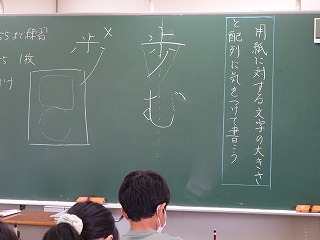 用紙に対する文字の大きさ
と配列に気をつけて書こう
歩む
まで練習
1枚